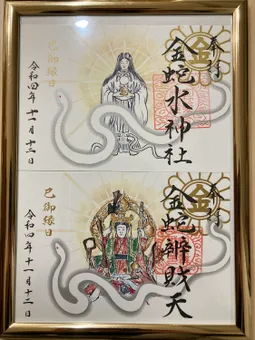 奉拝
金
金蛇水神社
巳御縁日
令和四年十一月十二日
奉拝
金
金蛇辨財天
巳御縁日
令和四年十一月十二日